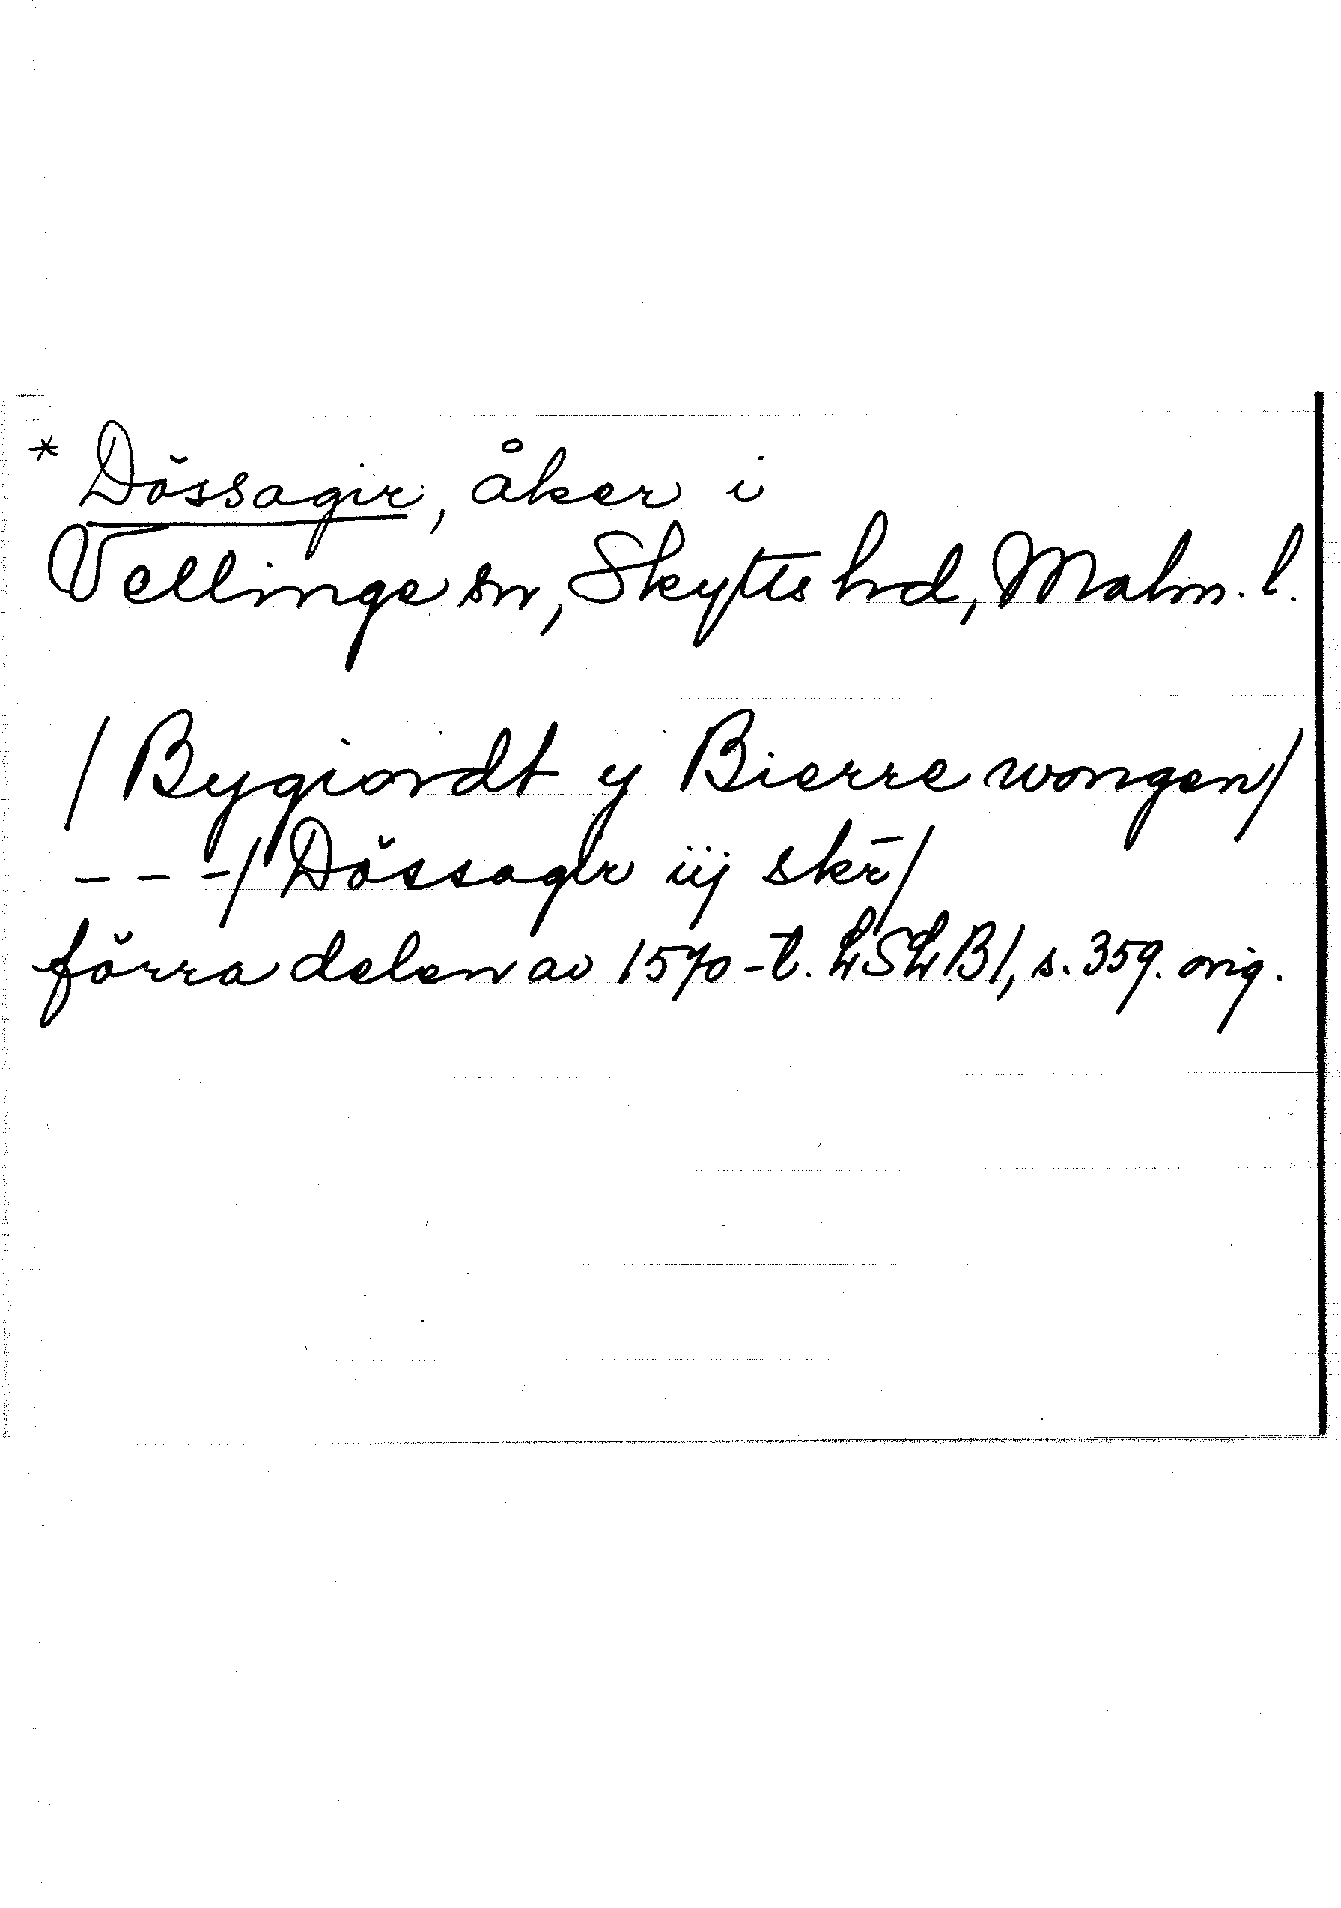 * Dössagir, åker i
Vellinge sn, Skytts hd, Malm. l.
/ Bygiordt y Bierre wongen/
- - -/ Dössagir iij skr̄/
förra delen av 1570-t. LSLB1, s. 359. orig.